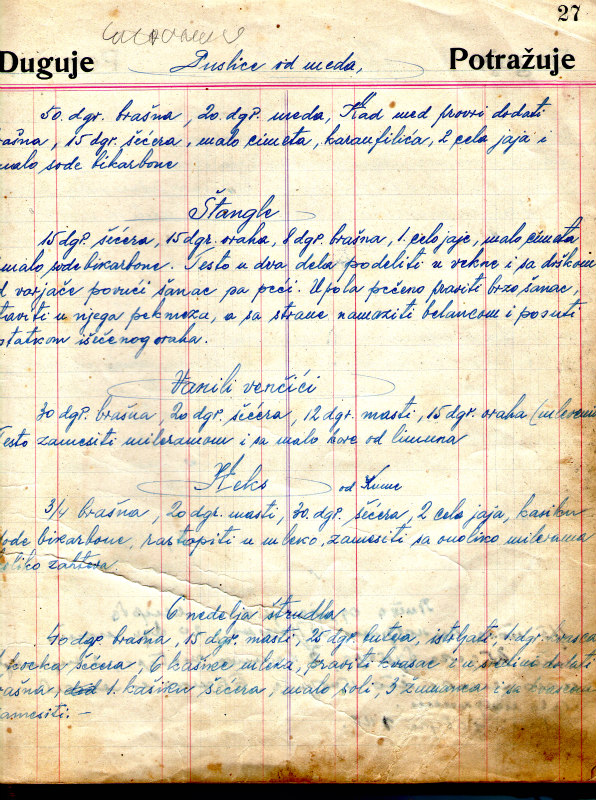 27
Duguje Puslice od meda, Potražuje
50. dgr. brašna, 20. dgr. meda, Kad med provri dodati
rašna, 15 dgr. šećera, malo cimeta, karanfilića, 2 cela jaja i
malo sode bikarbone
Štangle
15 dgr. šećera, 15 dgr. oraha, 8 dgr. brašna, 1. celo jaje, malo cimeta
malo sode bikarbone. Testo u dva dela podeliti u vekne i sa drškom
d varjače povući šanac pa peći. Upola pečeno praviti brzo šanac,
taviti u njega pekmeza, a sa strane namaziti belancom i posuti
statkom isečenog oraha.
Vanili venčići
30 dgr. brašna, 20 dgr. šećera, 12 dgr. masti, 15 dgr. oraha (mleveni
Testo zamesiti mileramom i sa malo kore od limuna
Keks od Kume
3/4 brašna, 20 dgr. masti, 30. dgr. šećera, 2 cela jaja, kasiku
sode bikarbone, rastopiti u mleko, zamesiti sa onoliko milerama
oliko zahteva
6 nedelja štrudla
40 dgr. brašna, 15 dgr. masti, 25 dgr. butera, istrljati 1. dgr. kvasca
kocka šećera, 6 kašike mleka, praviti kvasac i u sredinu dodati
rašna, 1. kašiku šećera, malo soli, 3 žumanca i sa kvascem
zamesiti. —